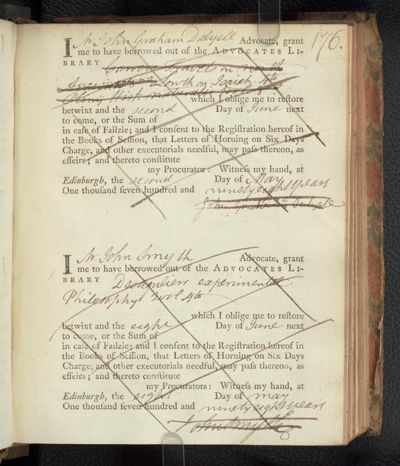 176.
I Mr John Graham Dalyell Advocate, grant
me to have borrowed out of the ADVOCATES LI-
BRARY
which I oblige me to restore
betwixt and the second Day of June next
to come, or the Sum of
in case of Failzie; and I consent to the Registration hereof in
the Books of Session, that Letters of Horning on Six Days
Charge, and other executorials needful, may pass thereon, as
effeirs; and thereto constitute
my Procurators: Witness my hand, at
Edinburgh, the second Day of May
One thousand seven hundred and ninety eight years
John Graham Dalyell
I Mr John Smyth Advocate, grant
me to have borrowed out of the ADVOCATES LI-
BRARY Desaguliers experimental
Philosophy 2 vol 4to
which I oblige me to restore
betwixt and the eight Day of June next
to come, or the Sum of
in case of Failzie; and I consent to the Registration hereof in
the Books of Session, that Letters of Horning on Six Days
Charge, and other executorials needful, may pass thereon, as
effeirs; and thereto constitute
my Procurators: Witness my hand, at
Edinburgh, the eight Day of may
One thousand seven hundred and ninety eight years
John Smyth